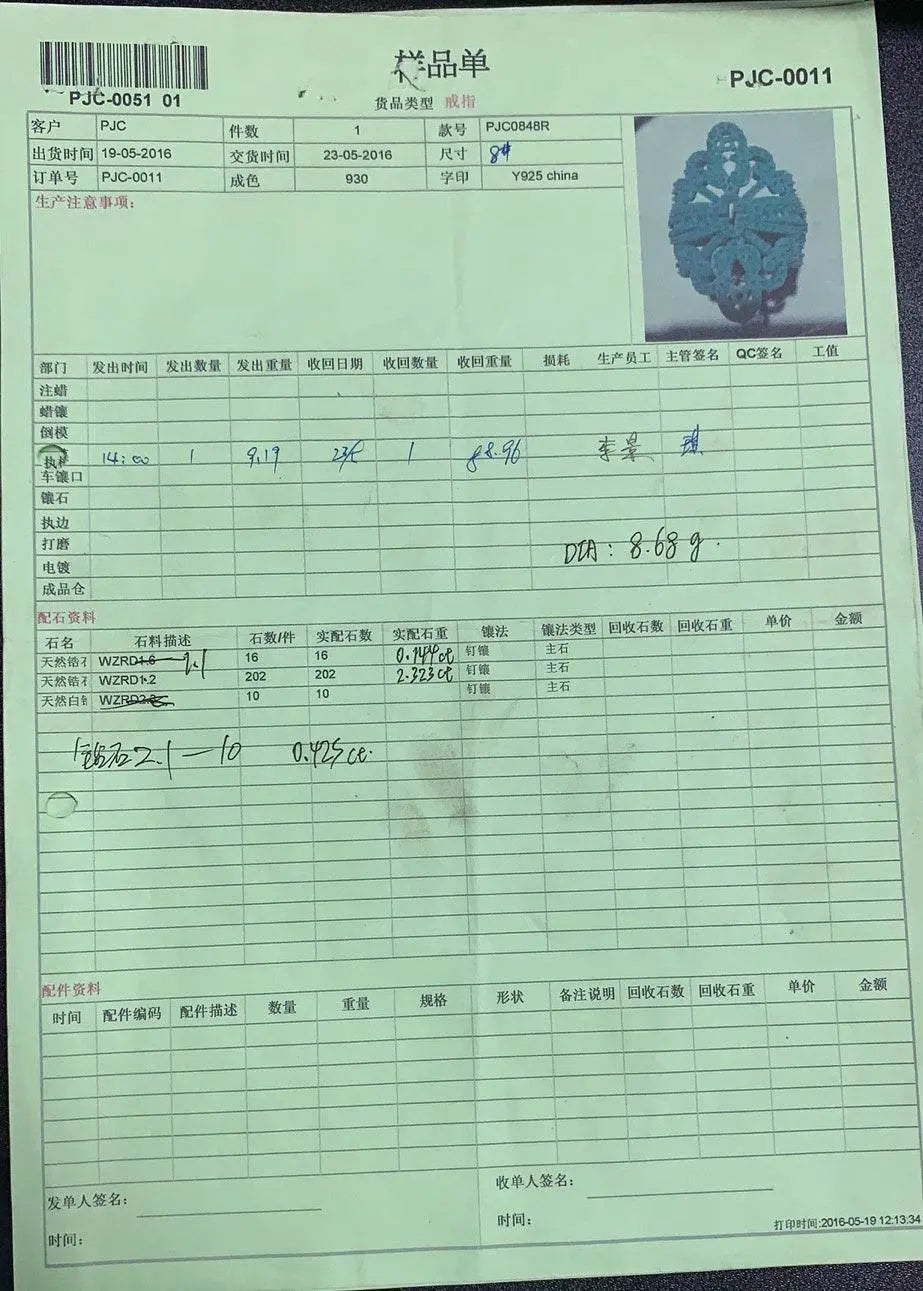 样品单
PJC-0051 01
PJC-0011
货品类型 戒指
客户 PJC 件数 1 款号 PJC0848R
出货时间 19-05-2016 交货时间 23-05-2016 尺寸 8#
订单号 PJC-0011 成色 930 字印 Y925 china
生产注意事项:
部门 发出时间 发出数量 发出重量 收回日期 收回数量 收回重量 损耗 生产员工 主管签名 QC签名 工值
注蜡
蜡镶
倒模
执 14:00 1 9.19 1 8.96
车镶口
镶石
执边
打磨
DIA: 8.68 g.
电镀
成品仓
配石资料
石名 石料描述 石数/件 实配石数 实配石重 镶法 镶法类型 回收石数 回收石重 单价 金额
天然锆石 WZRD1.6 2.1 16 16 0.144ct 钉镶 主石
天然锆石 WZRD1.2 202 202 2.323ct 钉镶 主石
天然白 WZRD2.2 10 10 钉镶 主石
石2.1—10 0.425 ct.
配件资料
时间 配件编码 配件描述 数量 重量 规格 形状 备注说明 回收石数 回收石重 单价 金额
发单人签名: 收单人签名:
时间: 时间:
打印时间:2016-05-19 12:13:34